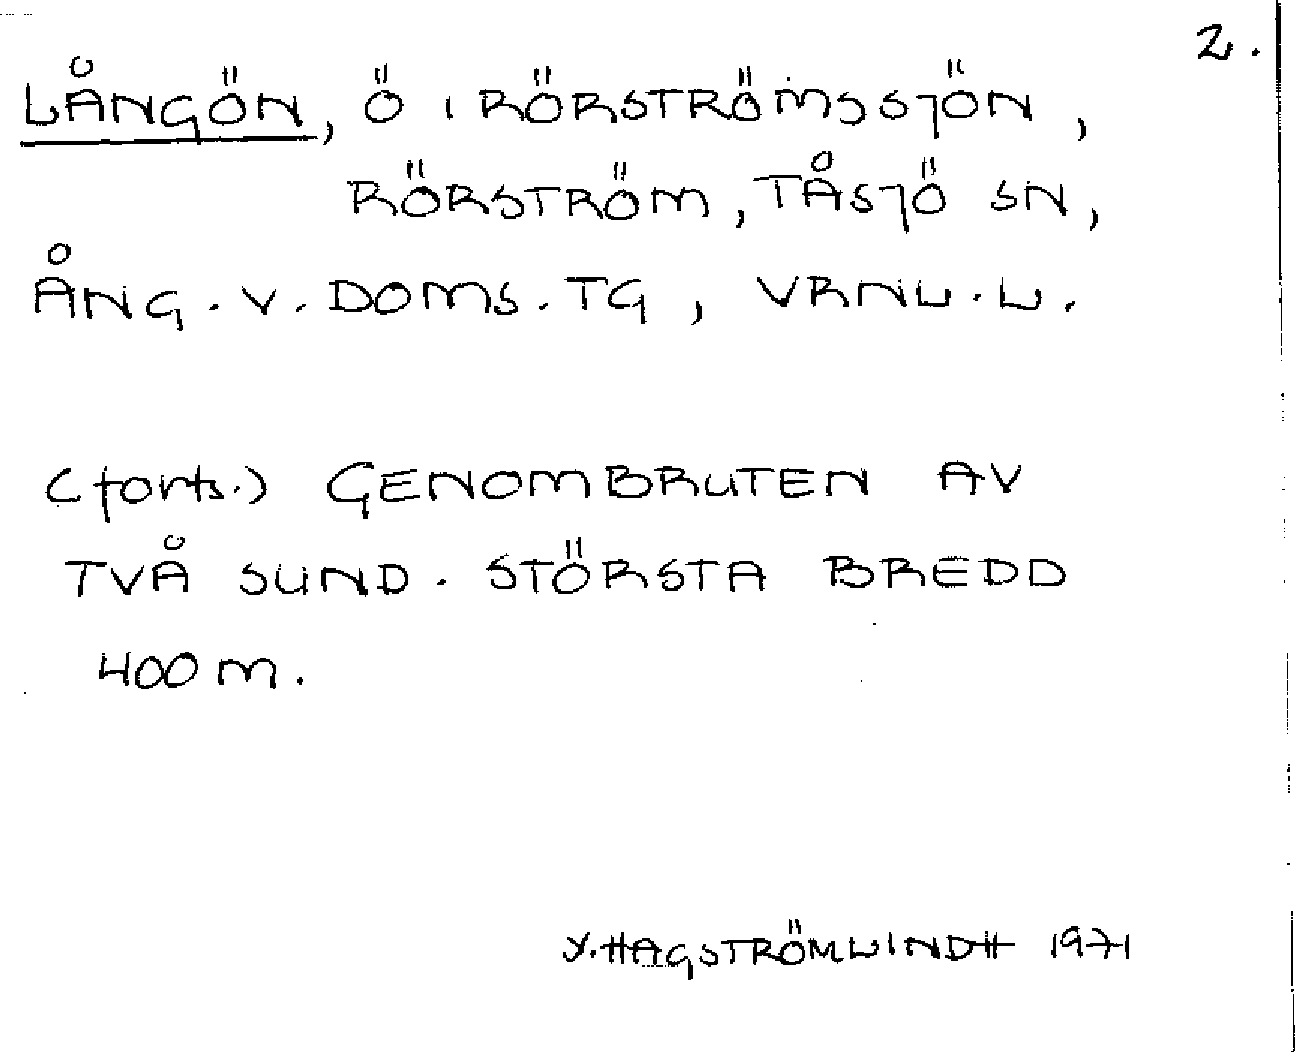 2.
LÅNGÖN, Ö I RÖRSTRÖMSSJÖN,
RÖRSTRÖM, TÅSJÖ SN,
ÅNG. V. DOMS. TG, VRNL. L.
(forts.) GENOMBRUTEN AV
TVÅ SUND. STÖRSTA BREDD
400 m.
Y. HAGSTRÖM LINDH 1971